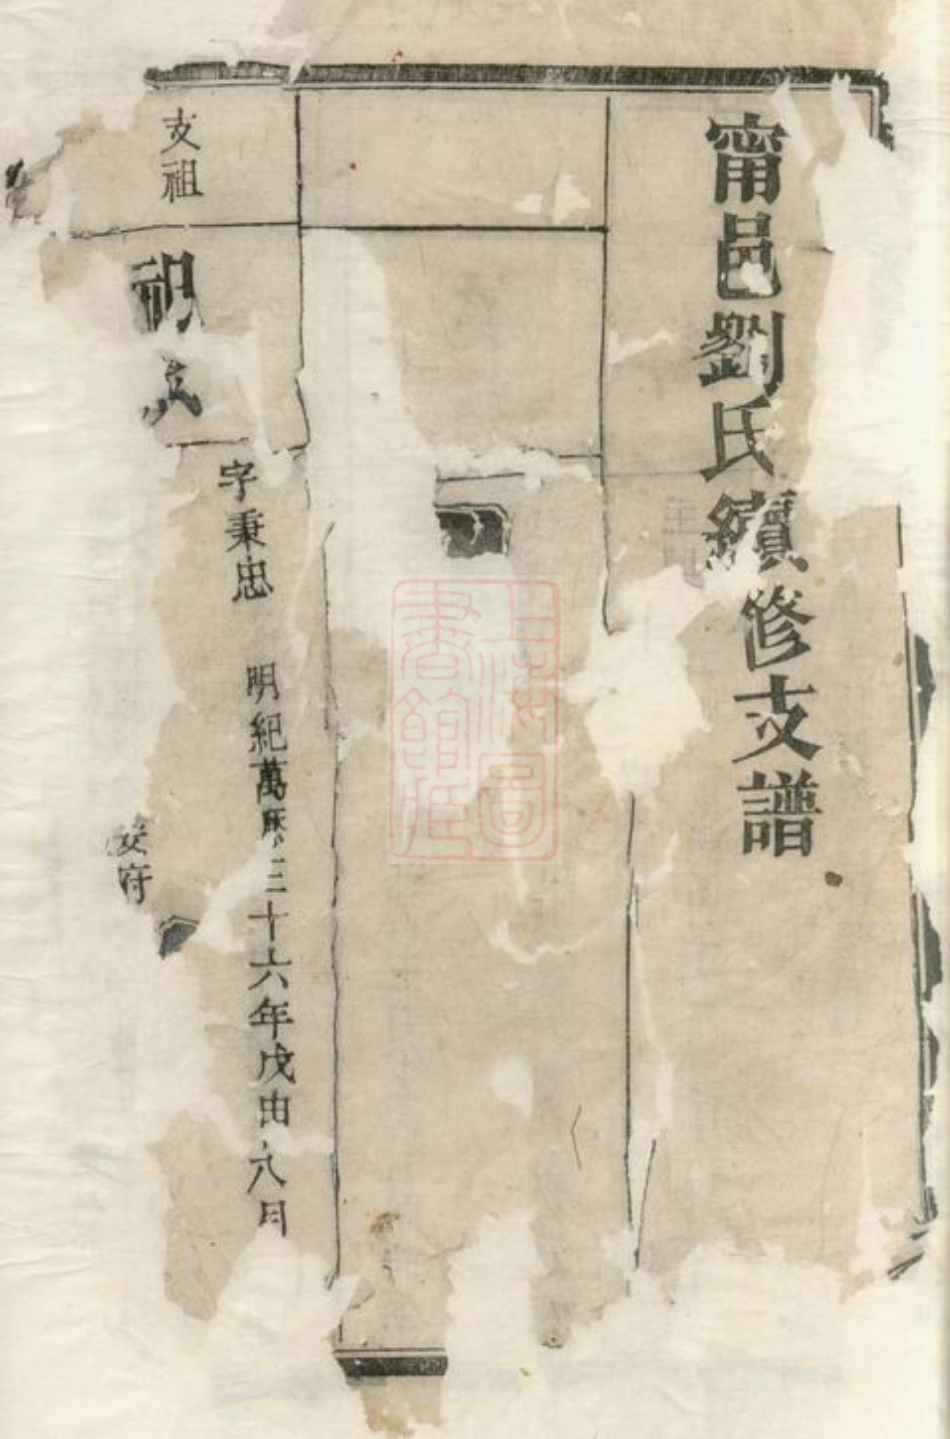 甯邑劉氏續修支譜
支祖
字秉忠 明紀萬歷三十六年戊申八月
安府
上海圖書館藏